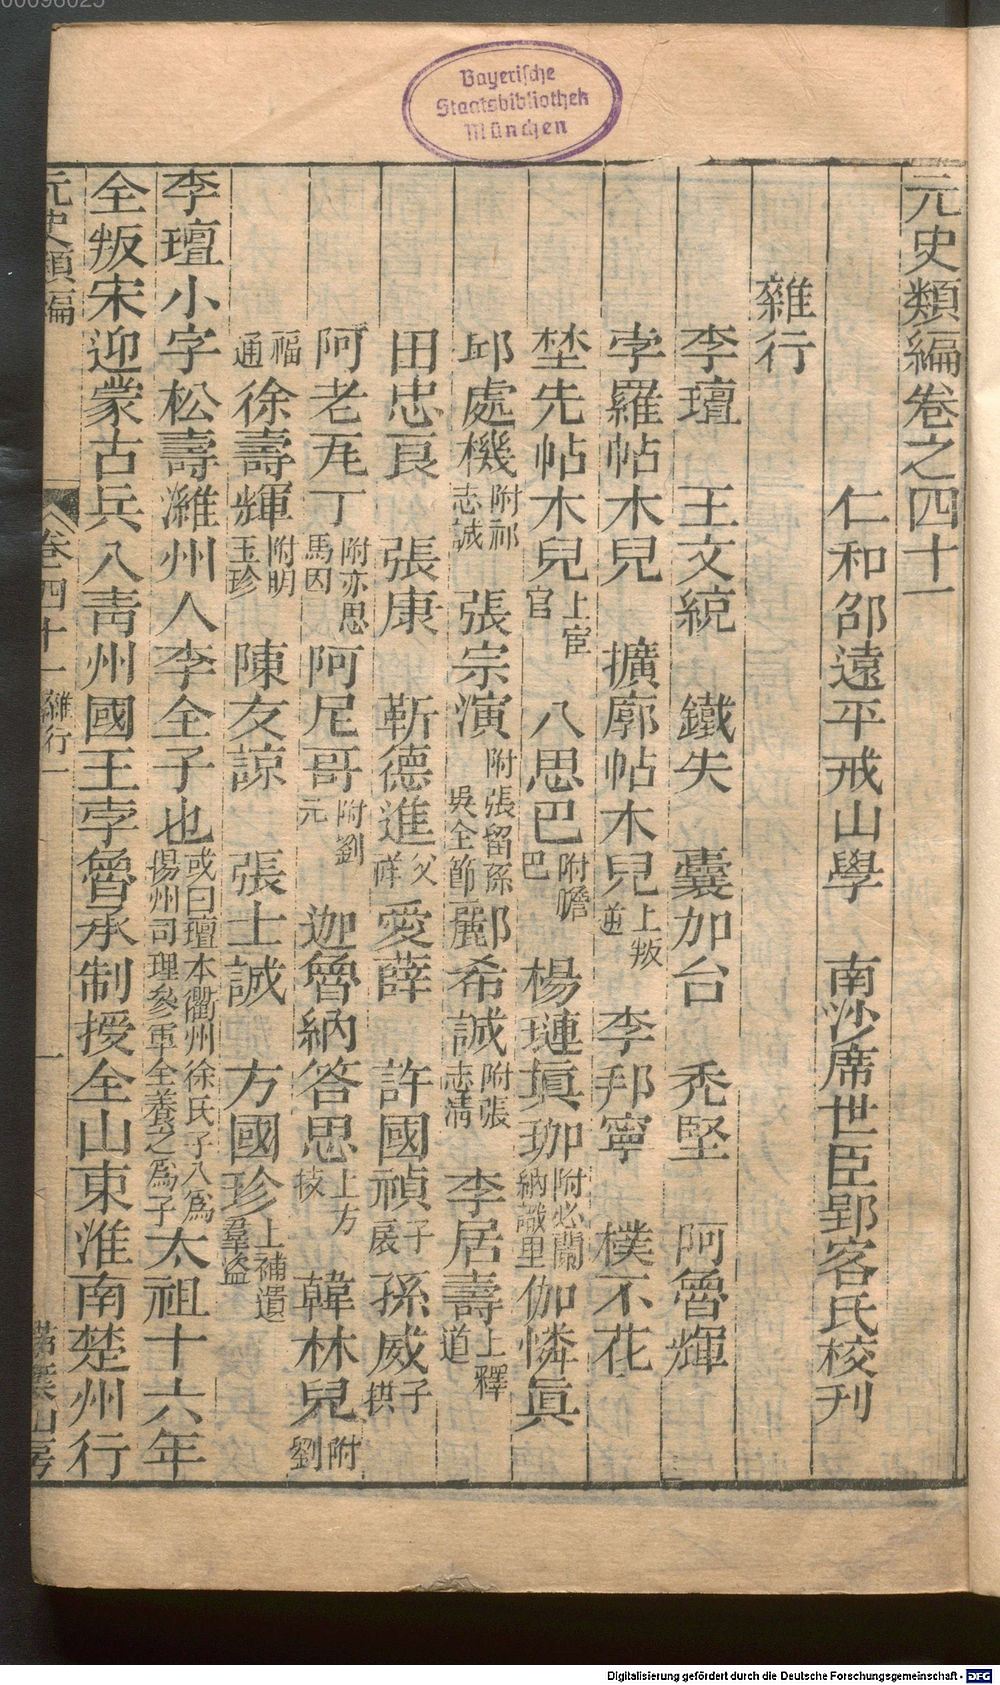 00096025
Bayerische
Staatsbibliothek
München
元史類編卷之四十一
仁和邵遠平戒山學　南沙席世臣郢客氏校刊
雜行
李璮　王文統　鐵失　囊加台　禿堅　阿魯輝
孛羅帖木兒　擴廓帖木兒上叛逆　李邦寧　樸不花
埜先帖木兒上宦官　八思巴附噡巴　楊璉眞珈附必蘭納識里伽憐眞
邱處機附祁志誠　張宗演附張留孫吳全節酈希誠附張志淸　李居壽上釋道
田忠良　張康　靳德進父祥愛薛　許國禎子扆孫威子拱
阿老瓦丁附亦思馬因阿尼哥附劉元　迦魯納答思上方技　韓林兒附劉
福通徐壽輝附明玉珍　陳友諒　張士誠　方國珍上補遺羣盜
李璮小字松壽濰州人李全子也或曰璮本衢州徐氏子八爲揚州司理參軍全養之爲子太祖十六年
全叛宋迎蒙古兵入靑州國王孛魯承制授全山東淮南楚州行
元史類編　卷四十一雜行一　一　掃葉山房
Digitalisierung gefördert durch die Deutsche Forschungsgemeinschaft - DFG